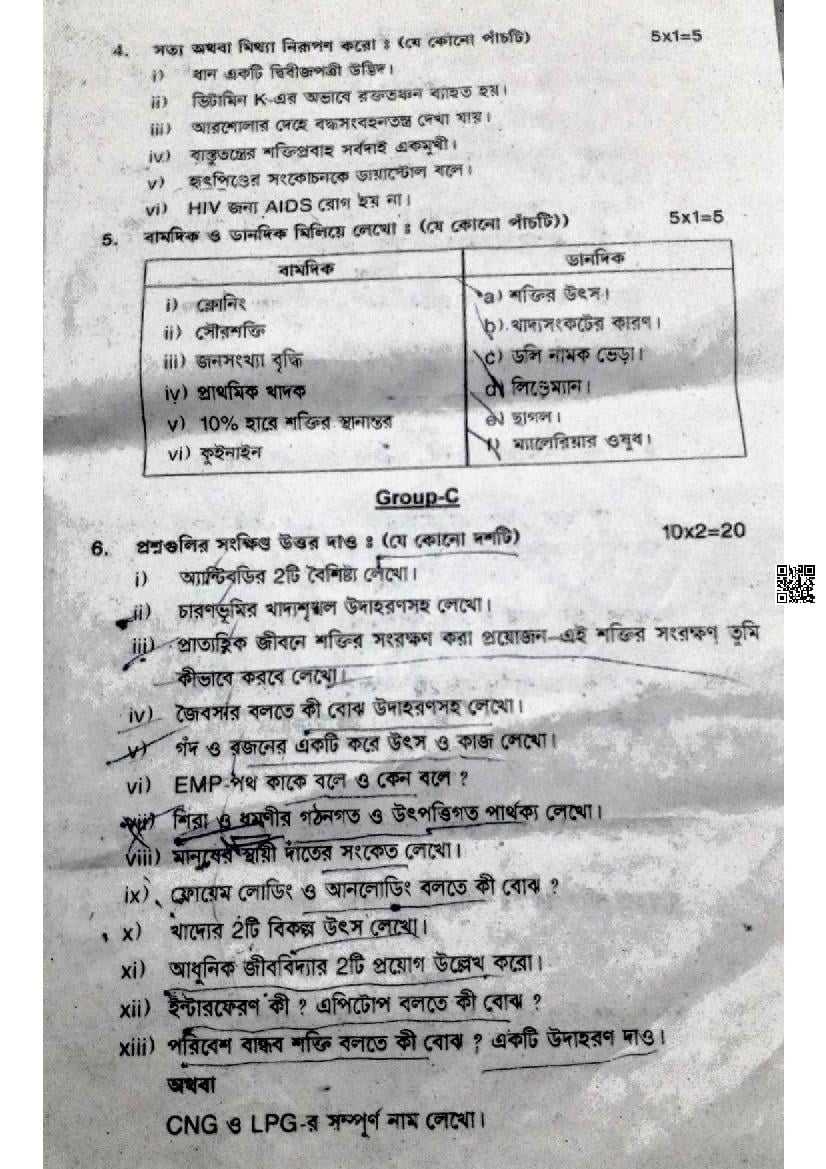 4. সত্য অথবা মিথ্যা নিরূপণ করো : (যে কোনো পাঁচটি) 5x1=5
i) ধান একটি দ্বিবীজপত্রী উদ্ভিদ।
ii) ভিটামিন K-এর অভাবে রক্ততঞ্চন ব্যাহত হয়।
iii) আরশোলার দেহে বদ্ধসংবহনতন্ত্র দেখা যায়।
iv) বাস্তুতন্ত্রের শক্তিপ্রবাহ সর্বদাই একমুখী।
v) হৃৎপিণ্ডের সংকোচনকে ডায়াস্টোল বলে।
vi) HIV জন্য AIDS রোগ হয় না।
5. বামদিক ও ডানদিক মিলিয়ে লেখো : (যে কোনো পাঁচটি)) 5x1=5
বামদিক ডানদিক
i) ক্লোনিং a) শক্তির উৎস।
ii) সৌরশক্তি b) খাদ্যসংকটের কারণ।
iii) জনসংখ্যা বৃদ্ধি c) ডলি নামক ভেড়া।
iv) প্রাথমিক খাদক d) লিণ্ডেম্যান।
v) 10% হারে শক্তির স্থানান্তর e) ছাগল।
vi) কুইনাইন f) ম্যালেরিয়ার ওষুধ।
Group-C
6. প্রশ্নগুলির সংক্ষিপ্ত উত্তর দাও : (যে কোনো দশটি) 10x2=20
i) অ্যান্টিবডির 2টি বৈশিষ্ট্য লেখো।
ii) চারণভূমির খাদ্যশৃঙ্খল উদাহরণসহ লেখো।
iii) প্রাত্যহিক জীবনে শক্তির সংরক্ষণ করা প্রয়োজন—এই শক্তির সংরক্ষণ তুমি
কীভাবে করবে লেখো।
iv) জৈবসার বলতে কী বোঝ উদাহরণসহ লেখো।
v) গঁদ ও রজনের একটি করে উৎস ও কাজ লেখো।
vi) EMP-পথ কাকে বলে ও কেন বলে ?
vii) শিরা ও ধমনীর গঠনগত ও উৎপত্তিগত পার্থক্য লেখো।
viii) মানুষের স্থায়ী দাঁতের সংকেত লেখো।
ix) ফ্লোয়েম লোডিং ও আনলোডিং বলতে কী বোঝ ?
x) খাদ্যের 2টি বিকল্প উৎস লেখো।
xi) আধুনিক জীববিদ্যার 2টি প্রয়োগ উল্লেখ করো।
xii) ইন্টারফেরণ কী ? এপিটোপ বলতে কী বোঝ ?
xiii) পরিবেশ বান্ধব শক্তি বলতে কী বোঝ ? একটি উদাহরণ দাও।
অথবা
CNG ও LPG-র সম্পূর্ণ নাম লেখো।